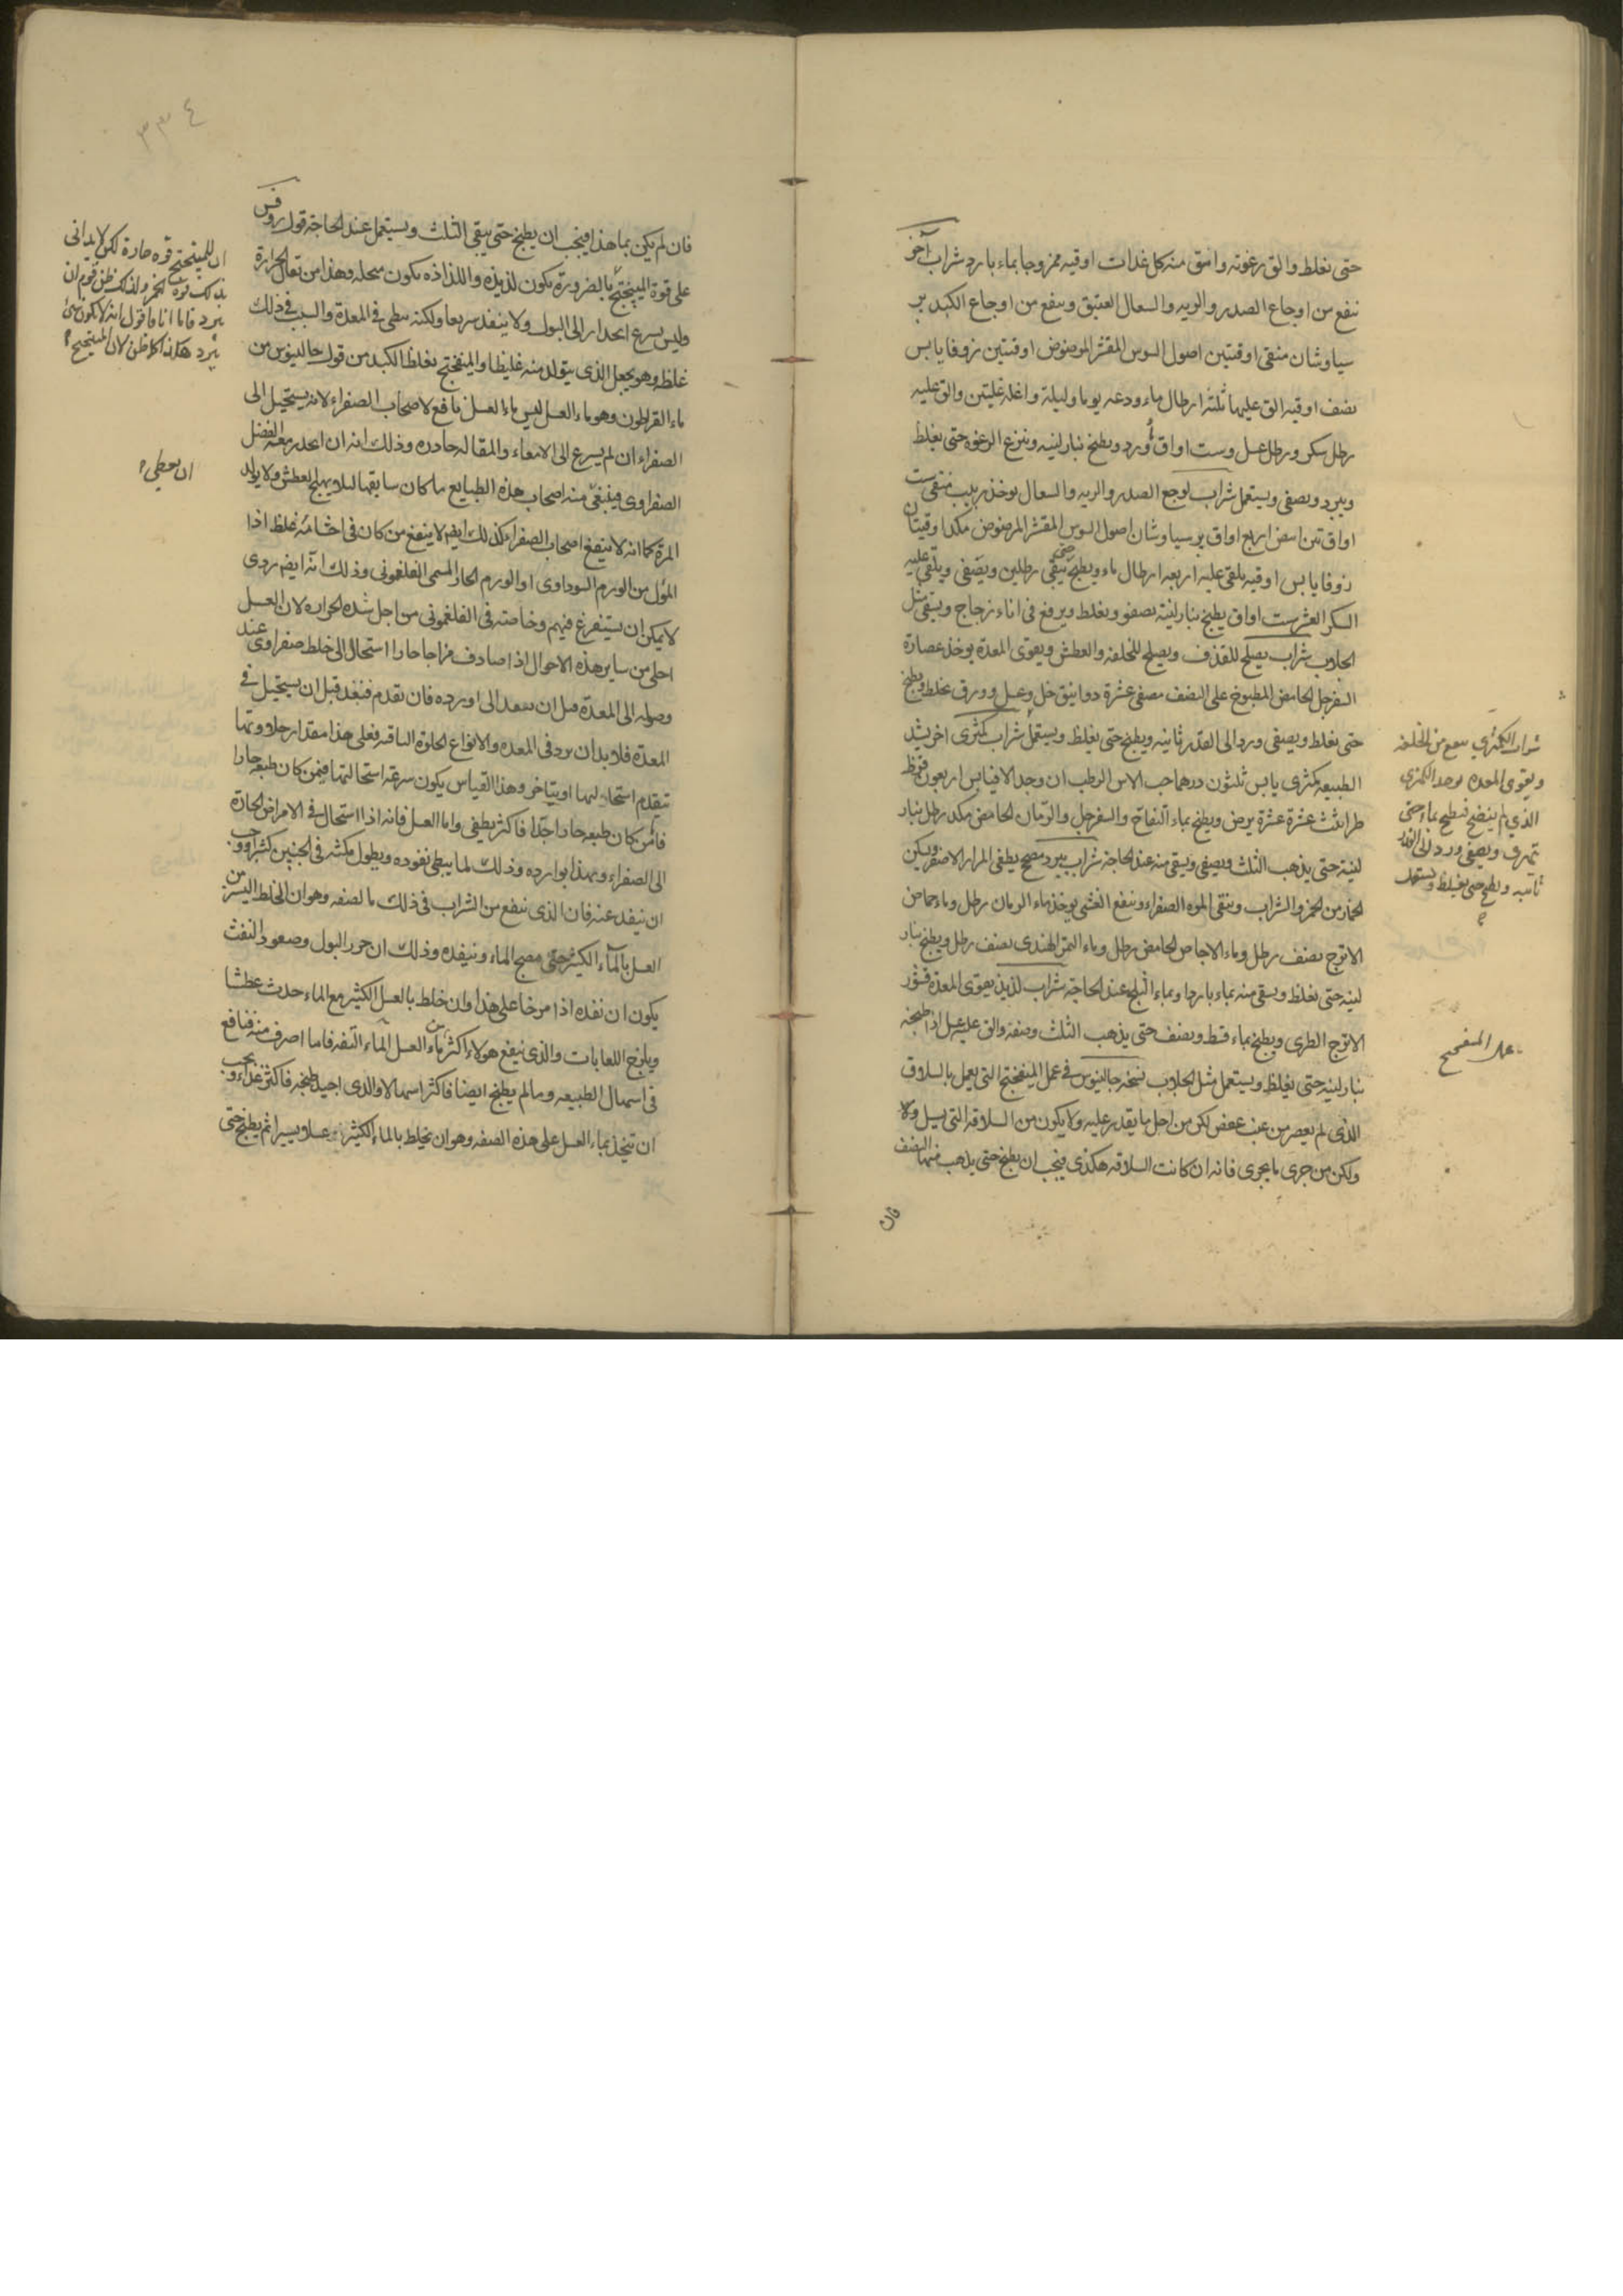 حتى يغلط والق رغوته واسق منه كل غدات اوقيه ممزوجا بماء بارد شراب آخر
ينفع من اوجاع الصدر والريه والسعال العتيق وينفع من اوجاع الكبد بر
سياوشان منقى اوقيتين اصول السوس المقشر المرضوض اوقيتين زوفا يابس
نصف اوقيه الق عليها ثلثة ارطال ماء ودعه يوما وليلة واغله غليتين والق عليه
رطل سكر ورطل عسل وست اواق ورد ويطبخ بنار لينه وينزع الرغوه حتى يغلظ
ويبرد ويصفى ويستعمل شراب لوجع الصدر والريه والسعال يوخذ زبيب منقى ست
اواق تين ابيض اربع اواق برسياوشان اصول السوس المقشر المرضوض مكدا وقيتان
زوفا يابس اوقيه يلقى عليه اربعه ارطال ماء ويطبخ حتى يبقى رطلين ويصفى ويلقى عليه
السكر العشر ست اواق يطبخ بنار لينة يصفو ويغلط ويرفع فى اناء زجاج ويسقى مثل
الجلاب شراب يصلح للقذف ويصلح للخلفه والعطش ويقوى المعدة يوخذ عصارة
السفرجل الحامض المطبوخ على النصف مصفى عشرة دوانيق خل وعسل وورق يخلط ويطبخ
حتى يغلط ويصفى ورد الى القدر ثانيه ويطبخ حتى يغلظ ويستعمل شراب كمثرى اخر يشد
الطبيعه كمثرى يابس ثلثون درهما حب الاس الرطب ان وجد الا فيابس اربعون قرظ
طراثيث عشرة عشرة يرض ويطبخ بماء التفاح والسفرجل والرمان الحامض مكد رطل بنار
لينة حتى يذهب الثلث ويصفى ويسقى منه عند الحاجة شراب يبرد مصح يطفى المرار الاصفر ويسكن
الخمار من الخمر والشراب وينقى المره الصفراء وينفع الغشى يوخذ ماء الرمان رطل وماء حماض
الاترج نصف رطل وماء الاجاص الحامض رطل وماء التمر الهندى نصف رطل ويطبخ بنار
لينه حتى يغلظ ويسقى منه بماء باردا وبماء الثلج عند الحاجة شراب لذيذ يقوى المعدة قشور
الاترج الطرى ويطبخ بماء قسط ونصف حتى يذهب الثلث وصفه والق عليه عسل اذا طبخه
بنار لينه حتى يغلظ ويستعمل مثل الجلاب نسخه جالينوس فى عمل الميفختج التى يعمل بالسلاق
الذى لم يعصر من عنب عفص لكن من احل ما يقدر عليه ولا يكون من السلاقه التى يسيل ولا
ولكن من جرى ما يجرى فانه ان كانت السلاقه هكذى فيجب ان يطبخ حتى يذهب منها النصف
فان
شراب الكمثرى ينفع من الخلفه
ويقوى المعده يوخذ الكمثرى
الذى لم ينضج فيطبخ بماء حتى
يتهرى ويصفى ورد الى القدر
ثانيه ويطبخ حتى يغلظ ويستعمل
عمل الميفختج
٣٣٤
فان لم يكن بماء هذا فيجب ان يطبخ حتى يبقى الثلث ويستعمل عند الحاجة قول روفس
على قوة الميبختج بالضرورة يكون لذيذه واللذاذه يكون منحله وهذا من تعال الحرارة
وليس يسرع انحدار الى البول ولا ينفذ سريعا ولكنه يبطى فى المعدة والسبب فى ذلك
غلظه وهو يجعل الذى يتولد منه غليظا والميبختج يغلظ الكبد من قول جالينوس من
ماء القراطون وهو ماء العسل ليس ماء العسل نافع لاصحاب الصفراء لانه يستحيل الى
الصفراء ان لم يسرع الى الامعاء والمقاله حادى وذلك انه ان انحدر معه الفضل
الصفراوى فينبغى منه اصحاب هذه الطبايع ما كان سابقها ليلا يهيج العطش ولا يولد
المرة كما انه لا ينفع اصحاب الصفراء كذلك ايضا لا ينفع من كان فى احشائه غلظ اذا
المول من الورم السوداوى او الورم الحار المسمى الفلغمونى وذلك انه ايضا ردى
لا يمكن ان يستفرغ فيهم وخاصته فى الفلغمونى من اجل شده الحراره لان العسل
احلى من ساير هذه الاحوال اذا صادف مزاجا حارا استحال الى خلط صفراوى عند
وصوله الى المعدة قبل ان ينفد الى اورده فان تقدم فنفذ قبل ان يستحيل فى
المعدة فلا بد ان يرد فى المعده والانواع الحلوة الباقيه فعلى هذا مقدار حلاوتها
يتقدم استحالتها او يتاخر وهذا القياس يكون سرعة استحالتها فيمن كان طبعه حارا
فاما من كان طبعه حارا جدا فاكثر يطفى واما العسل فانه اذا استحال فى الامراض الحادة
الى الصفراء وبهذا بوارده وذلك لما يبطى نفوده ويطول مكثه فى الجنبين كثيرا ووجب
ان ينفد عنه فان الذى ينفع من الشراب فى ذلك بالصفه وهو ان الخلط اليسير من
العسل بالماء الكثير حتى يصبح الماء وينفده وذلك ان حرور البول وصعود النفث
يكون ان نفده اذا مرخا على هذا وان خلط بالعسل الكثير مع الماء حدث عطشا
ويلزج اللعابات والذى ينفع هولاء اكثر من ماء العسل الماء التفه فاما اصرف منه فنافع
فى اسهال الطبيعه وما لم يطبخ ايضا فاكثر اسهالا والذى اجيد طبخه فاكثر غذاء ويجب
ان يتخذ بماء العسل على هذه الصفه وهو ان يخلط بالماء الكثير عسلا يسيرا ثم يطبخ حتى
ان للميبختج قوه حارة لكن لا يدانى
بذلك قوة الخمر ولذلك ظن قوم ان
يبرد فاما انا فاقول انه لا يكون شئ
يبرد هكذا كما ظن لان الميبختج
ان يعطى